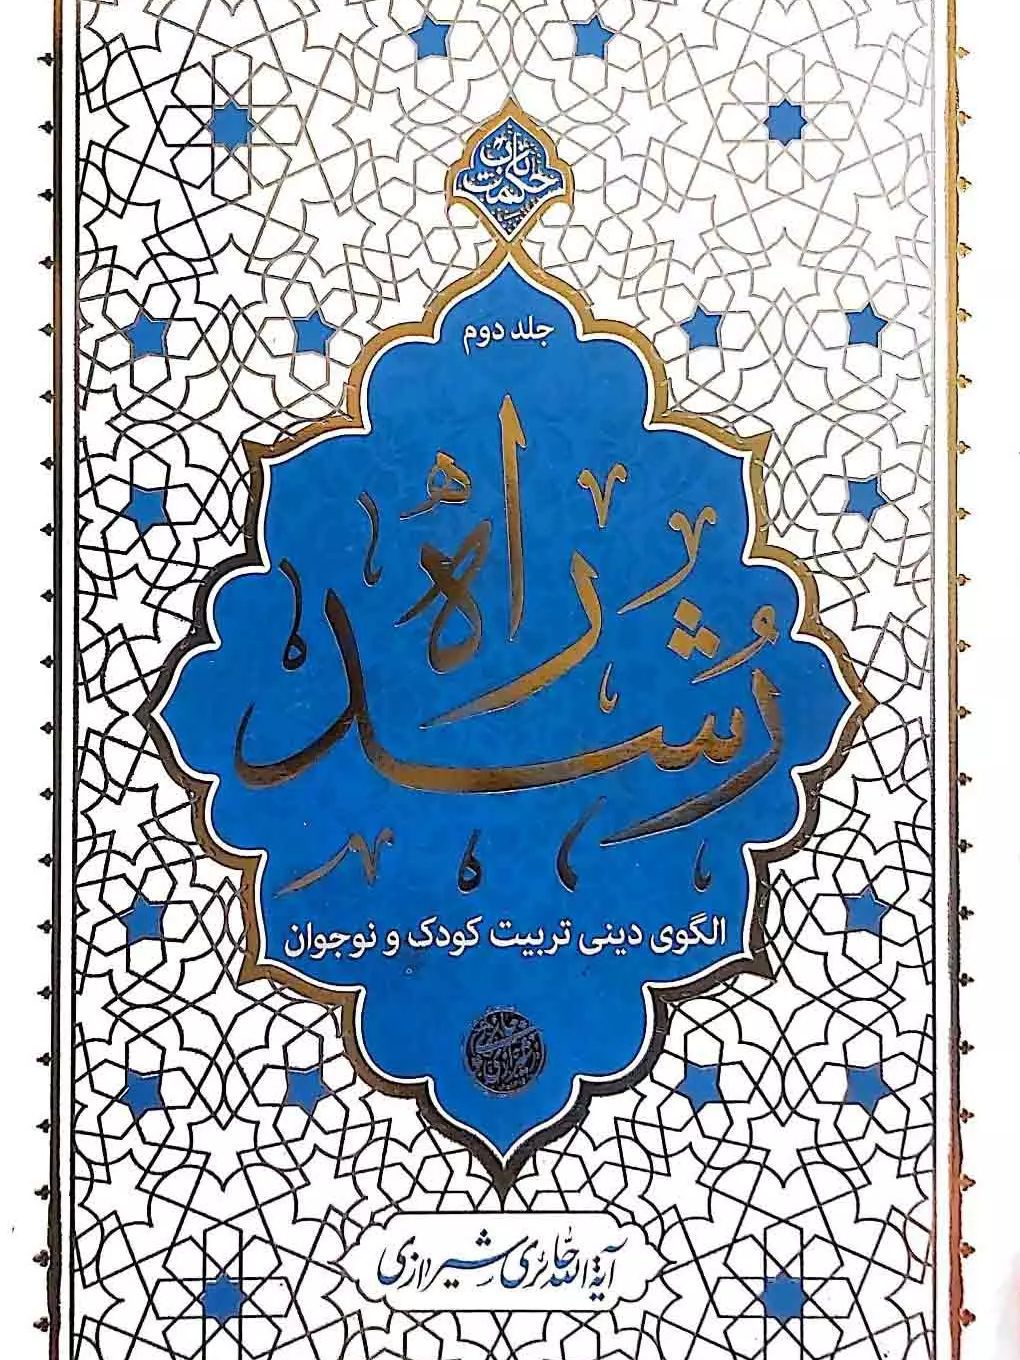 حکمت ناب
جلد دوم
راه
رُشد
الگوی دینی تربیت کودک و نوجوان
آیة الله حائری شیرازی